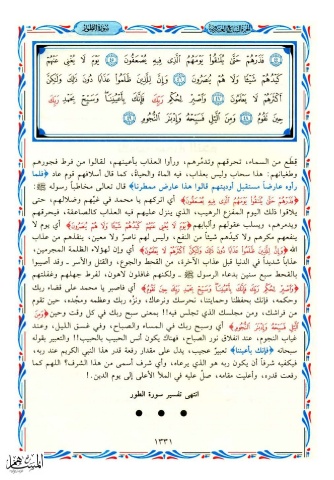 سورة الطور
فَذَرْهُمْ حَتَّى يُلَاقُوا يَوْمَهُمُ الَّذِي فِيهِ يُصْعَقُونَ ۝ يَوْمَ لَا يُغْنِي عَنْهُمْ
كَيْدُهُمْ شَيْئًا وَلَا هُمْ يُنصَرُونَ ۝ وَإِنَّ لِلَّذِينَ ظَلَمُوا عَذَابًا دُونَ ذَلِكَ وَلَكِنَّ
أَكْثَرَهُمْ لَا يَعْلَمُونَ ۝ وَاصْبِرْ لِحُكْمِ رَبِّكَ فَإِنَّكَ بِأَعْيُنِنَا وَسَبِّحْ بِحَمْدِ رَبِّكَ
حِينَ تَقُومُ ۝ وَمِنَ اللَّيْلِ فَسَبِّحْهُ وَإِدْبَارَ النُّجُومِ
قِطَع من السماء، تحرقهم وتدمّرهم، ورأوا العذاب بأعينهم، لقالوا من فرط فجورهم
وطغيانهم: هذا سحاب وليس بعذاب، فيه الماءُ والحياةُ، كما قال أسلافهم قوم عاد ﴿فلما
رأوه عارضاً مستقبل أوديتهم قالوا هذا عارض ممطرنا﴾ قال تعالى مخاطباً رسوله ﷺ:
﴿فَذَرْهُمْ حَتَّى يُلَاقُوا يَوْمَهُمُ الَّذِي فِيهِ يُصْعَقُونَ﴾ أي اتركهم يا محمد في غيّهم وضلالهم، حتى
يلاقوا ذلك اليوم المفزع الرهيب، الذي ينزل عليهم فيه العذاب كالصاعقة، فيحرقهم
ويدمرهم، ويسلب عقولهم وألبابهم ﴿يَوْمَ لَا يُغْنِي عَنْهُمْ كَيْدُهُمْ شَيْئًا وَلَا هُمْ يُنصَرُونَ﴾ أي يوم لا
ينفعهم مكرهم ولا كيدُهم شيئاً من النفع، وليس لهم ناصرٌ ولا معين، ينقذهم من عذاب
الله ﴿وَإِنَّ لِلَّذِينَ ظَلَمُوا عَذَابًا دُونَ ذَلِكَ وَلَكِنَّ أَكْثَرَهُمْ لَا يَعْلَمُونَ﴾ أي وإن لهؤلاء الظلمة المجرمين،
عذاباً شديداً في الدنيا قبل عذاب الآخرة، من القحط والجوع، والقتل والأسر ـ وقد أصيبوا
بالقحط سبع سنين بدعاء الرسول ﷺ ـ ولكنهم غافلون لاهون، لفرط جهلهم وغفلتهم
﴿وَاصْبِرْ لِحُكْمِ رَبِّكَ فَإِنَّكَ بِأَعْيُنِنَا وَسَبِّحْ بِحَمْدِ رَبِّكَ حِينَ تَقُومُ﴾ أي فاصبر يا محمد على قضاء ربك
وحكمه، فإنك بحفظنا وحمايتنا، نحرسك ونرعاك، ونزّه ربك وعظمه ومجده، حين تقوم
من فراشك، ومن مجلسك الذي تجلس فيه!! بمعنى سبح ربك في كل وقت وحين ﴿وَمِنَ
اللَّيْلِ فَسَبِّحْهُ وَإِدْبَارَ النُّجُومِ﴾ أي وسبح ربك في المساء والصباح، وفي غسق الليل، وعند
غياب النجوم، عند انفلاق نور الصباح، فهناك يكون أنس الحبيب بالحبيب!! والتعبير بقوله
سبحانه ﴿فإنك بأعيننا﴾ تعبيرٌ عجيب، يدل على مقدار رفعة قدر هذا النبي الكريم عند ربه،
فيكفيه شرفاً أن يكون ربه هو الذي يرعاه، وأي شرف أسمى من هذا الشرف؟ اللهم كما
رفعت قدره، وأعليت مقامه، صلّ عليه في الملأ الأعلى إلى يوم الدين.!
انتهى تفسير سورة الطور
١٣٣١